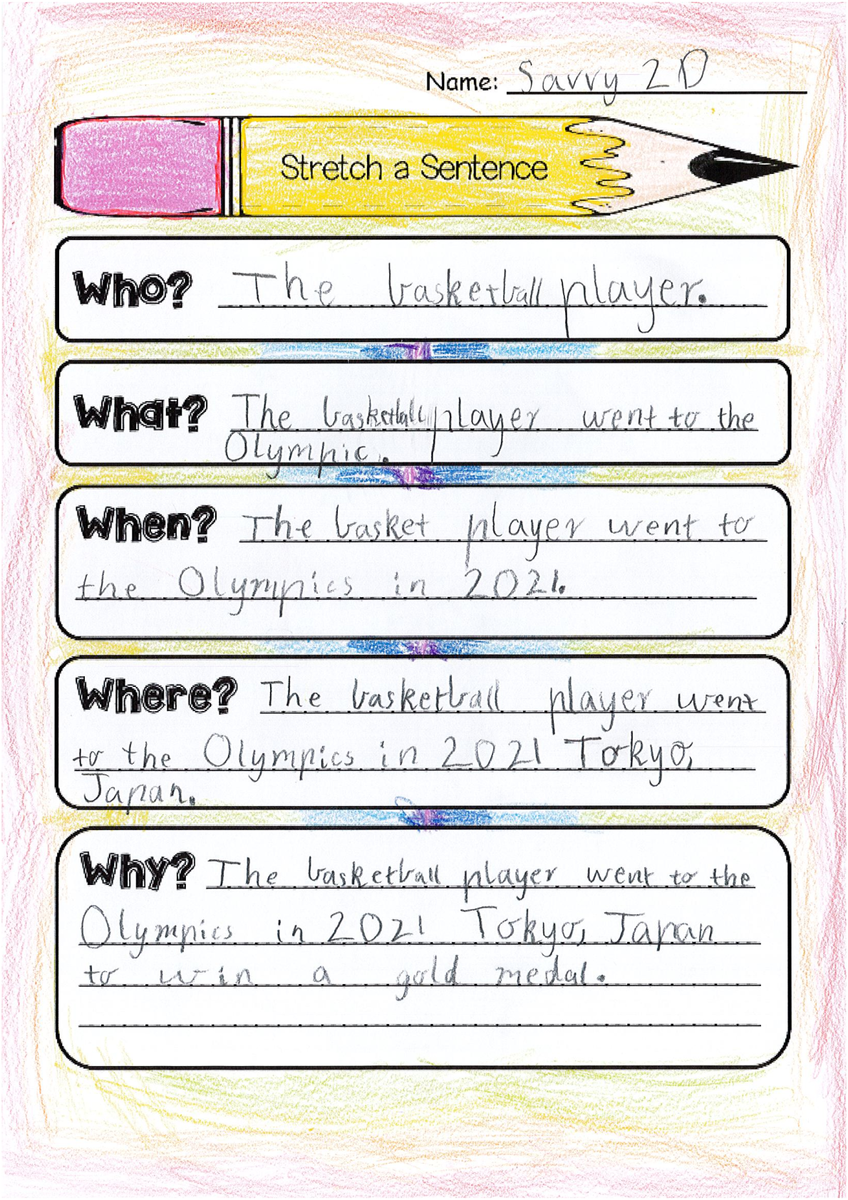 Name: Savvy 2D
Stretch a Sentence
Who? The basketball player.
What? The basketball player went to the
Olympic.
When? The basket player went to
the Olympics in 2021.
Where? The basketball player went
to the Olympics in 2021 Tokyo,
Japan.
Why? The basketball player went to the
Olympics in 2021 Tokyo, Japan
to win a gold medal.